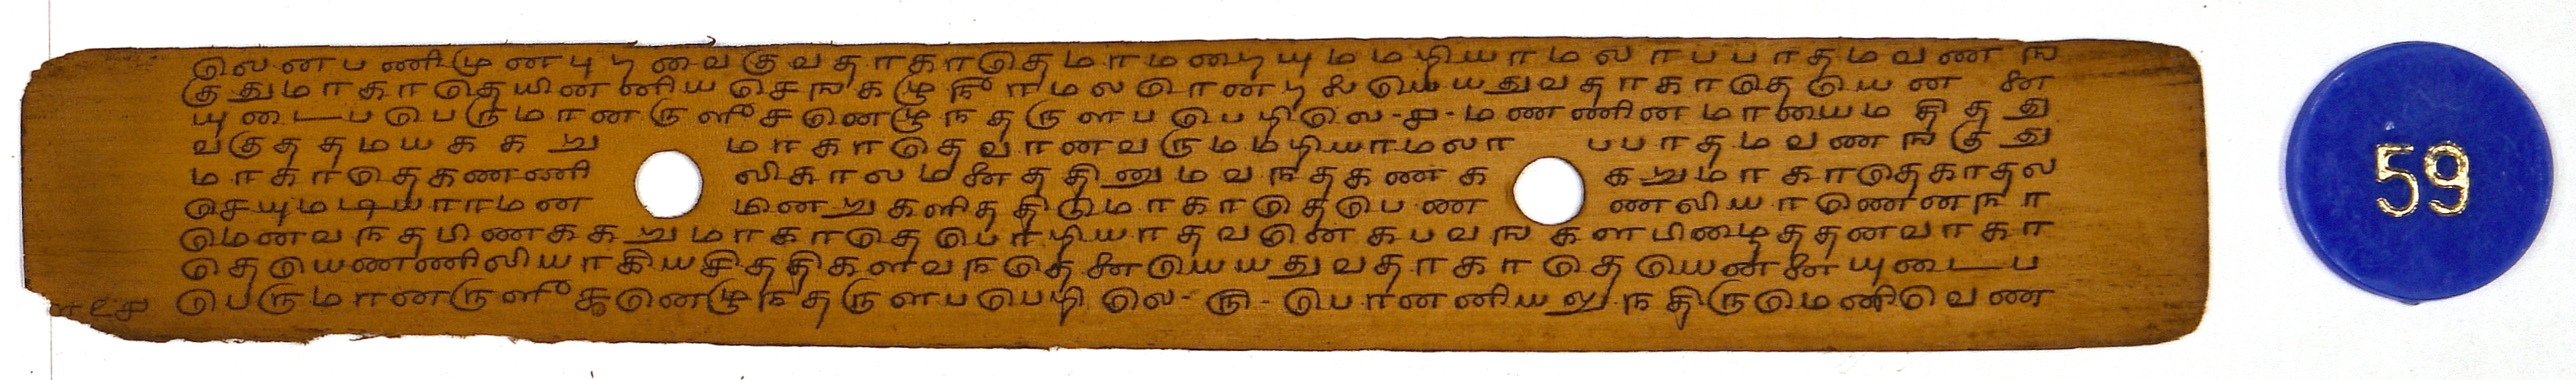 லெனபணிமுனபுறிவைகுவதாகாதெமாமறையுமமறியாமலாபபாதமவணங
குதுமாகாதெயினனியசெஙகழுநீாமலரெனறலையெயதுவதாகாதெயெனனை
யுடைபபெருமானருளீசனெழுநதருளபபெறிலெ-௪-மணணினமாயைமதிதது
வகுததமயககறுமாகாதெவானவருமமறியாமலாபபாதமவணஙகுது
மாகாதெகணணிலிகாலமனைததினுமவநதகணககறுமாகாதெகாதல
செயுமடியாாமனமினறுகளிததிடுமாகாதெபெணணலியாணெனநா
மெனவநதபிணககறுமாகாதெபெரறியாதவனெகபவஙகளபிழைததனவாகா
தெயெணணிலியாகியசிததிகளவநதெனையெயதுவதாகாதெயெனனையுடைப
பெருமானருளீசனெழுநதருளபபெறிலெ-௫-பொனனியலுநதிருமெனிவெண